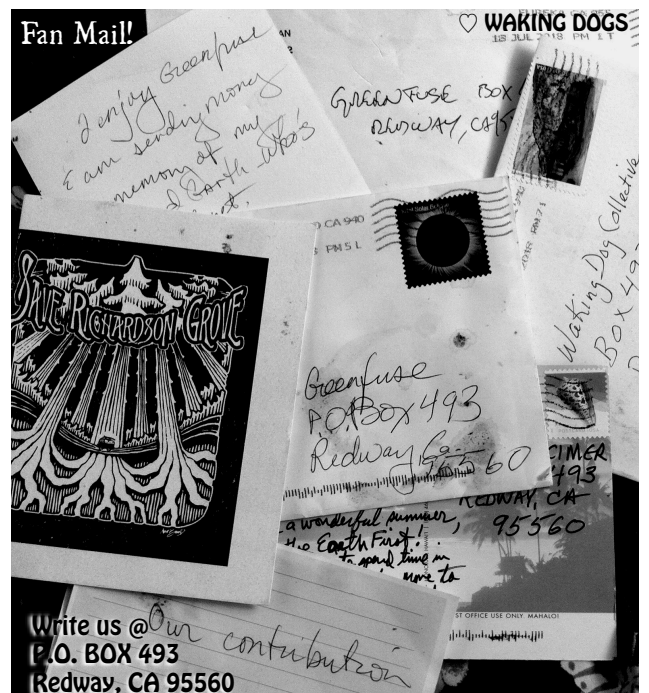 Fan Mail!
♡ WAKING DOGS
I enjoy Greenfuse
I am sending money
memory of my
Earth
18 JUL 2018 PM 1 T
GREENFUSE BOX
REDWAY, CA 95
CA 940
PM 5 L
Waking Dog Collective
BOX 49
SAVE RICHARDSON GROVE
Greenfuse
P.O. BOX 493
Redway, Ca
95560
CIMER
493
REDWAY, CA
95560
a wonderful summer,
the Earth First!
to spend time in
move to
ST OFFICE USE ONLY MAHALO!
Our contribution
Write us @
P.O. BOX 493
Redway, CA 95560